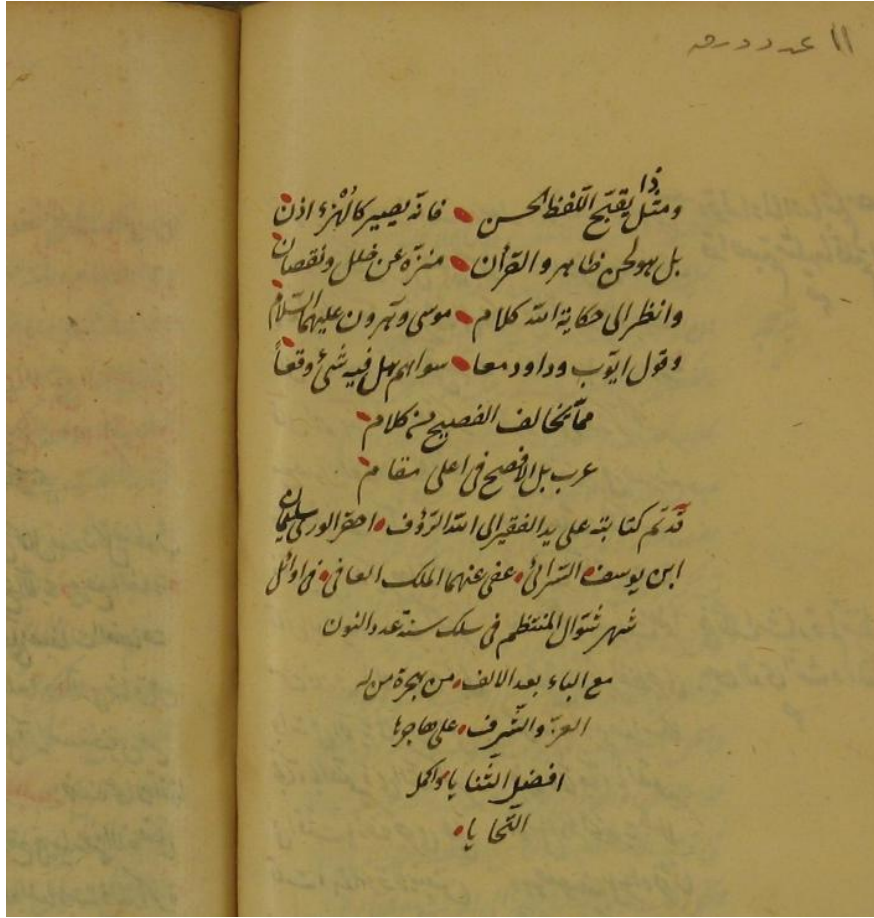 ١١ عدد ورقه
ومثل ذا يقبّح اللّفظ الحسن • فانّه يصير كالهُزء اذن
بل هو لحن ظاهر والقرأن • منزّه عن خلل ونقصان
وانظر الى حكاية الله كلام • موسى وهرون عليهما السّلام
وقول ايّوب وداود معا • سواهم هل فيه شئ وقعاً
ممّا يخالف الفصيح من كلام
عرب بل الافصح فى اعلى مقام
قد تمّ كتابته على يد الفقير الى الله الرّؤف • احقر الورى سليمان
ابن يوسف السّرائى • عفى عنهما الملك العافى • فى اوائل
شهر شوّال المنتظم فى سلك سنة عدد النون
مع الباء بعد الالف • من هجرة من له
العزّ والشّرف • على هاجرها
افضل الثّنايا واكمل
التّحايا •